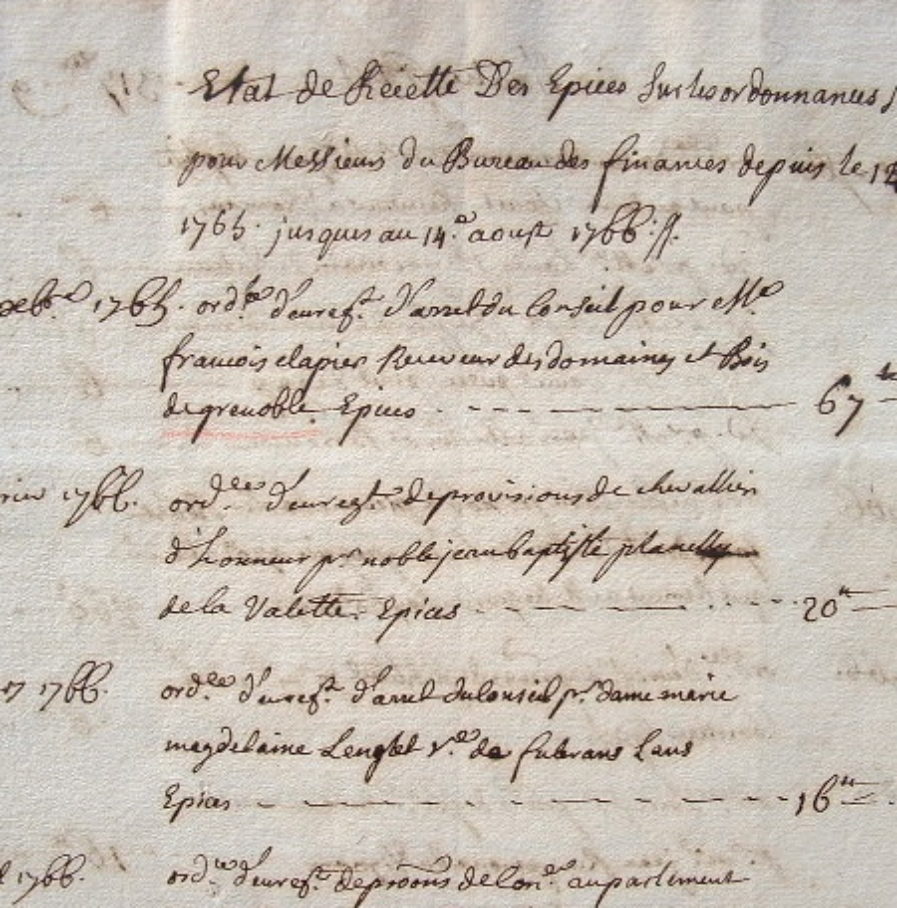 Etat de Recette Des Epices Sur les ordonnances
pour Messieurs du Bureau des finances depuis le 12
1765. jusques au 14.e aoust 1766 ://.
xeb.re 1765. ord.ce d'enreg.t d'arret du Conseil pour Me
francois clapier Receveur des domaines et Bois
de grenoble. Epices - - - - 67tt
rier 1766. ord.ces d'enregt. de provisions de chevallier
d'honneur pr noble jean baptiste planelly
de la Valette. Epices - - - - 20tt
17 1766. ord.ce d'enreg.t d'arret du Conseil pr. dame marie
magdelaine Lenglet v.e de
Epices - - - - 16tt
l 1766. ord.ce d'enreg.t de proons de Con.er au parlement